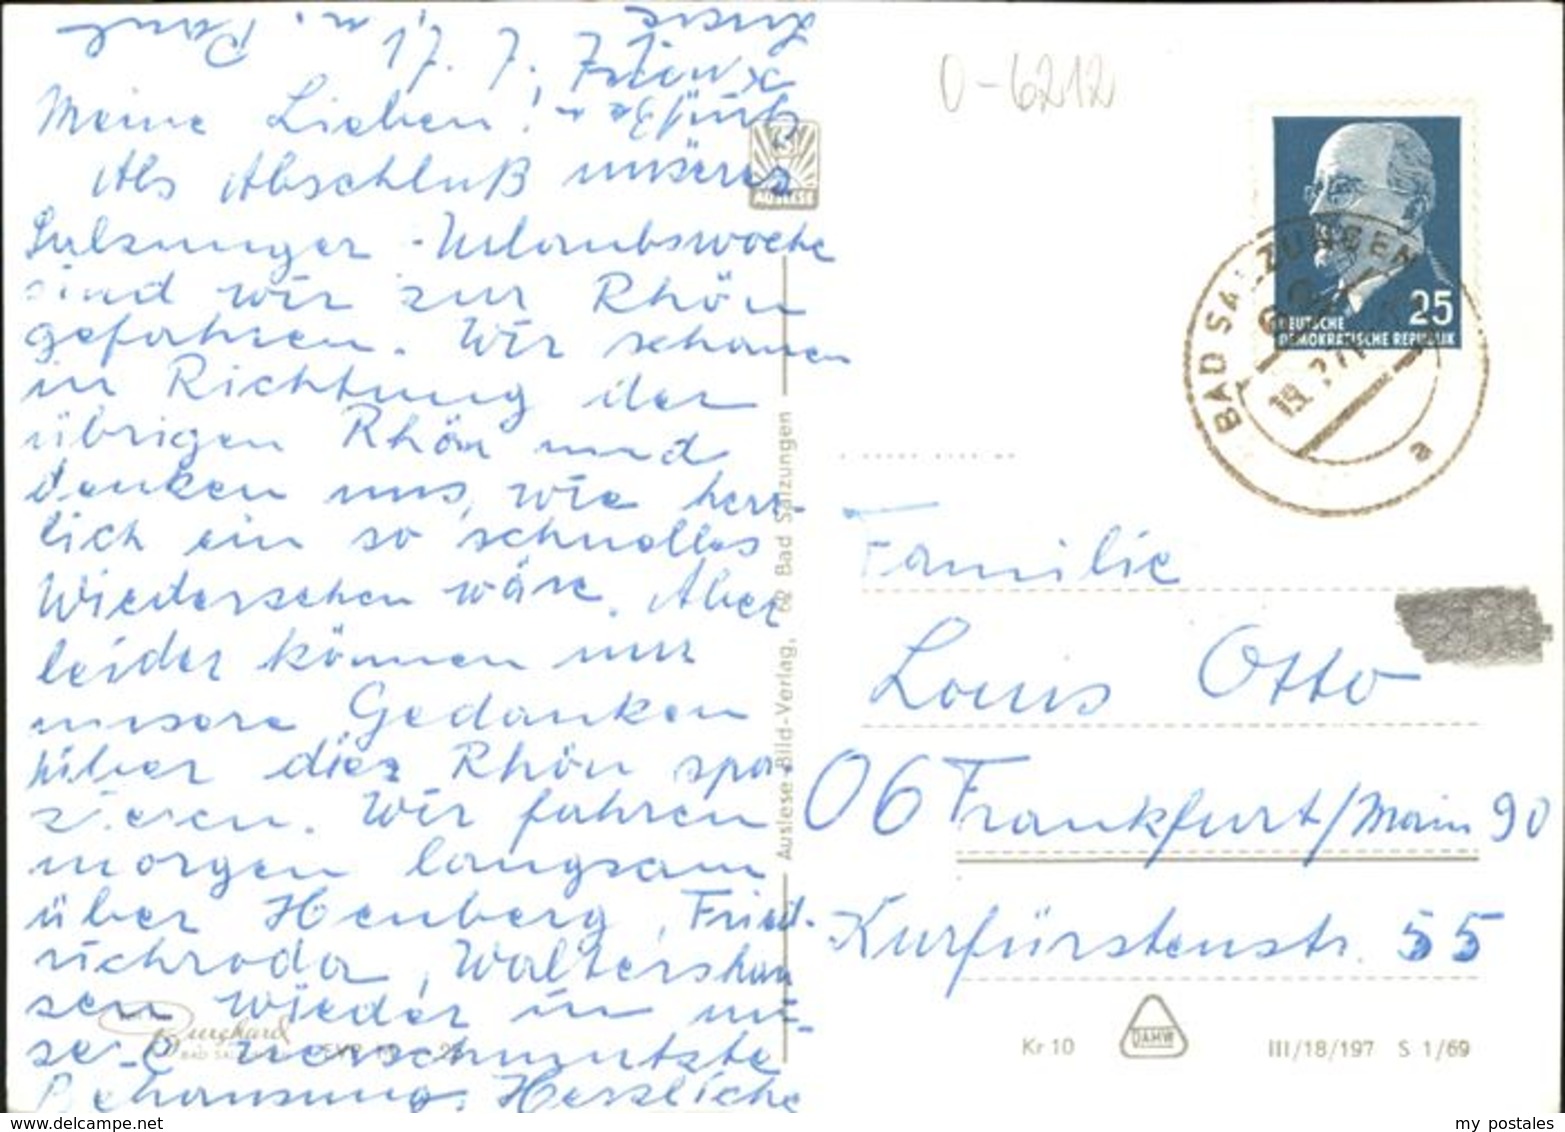 Meine Lieben!
Als Abschluß unseres
Salzunger-Urlaubswoche
sind wir zur Rhön
gefahren. Wir schauen
in Richtung der
übrigen Rhön und
denken uns, wie herr-
lich ein so schnelles
Wiedersehen wäre. Aber
leider können nur
unsere Gedanken
über die Rhön spa-
zieren. Wir fahren
morgen langsam
über Henberg, Fried-
richroda, Waltershau
sen wieder in un-
se-e verschmutzte
Behausung. Herzliche
17. 7.
Burghard
BAD SALZUNGEN
AUSLESE
Auslese-Bild-Verlag, 62 Bad Salzungen
0-6212
25
DEUTSCHE
DEMOKRATISCHE REPUBLIK
BAD SALZUNGEN
a
Familie
Louis Otto
06 Frankfurt/Main 90
Kurfürstenstr. 55
Kr 10
DAHW
III/18/197 S 1/69
my postales